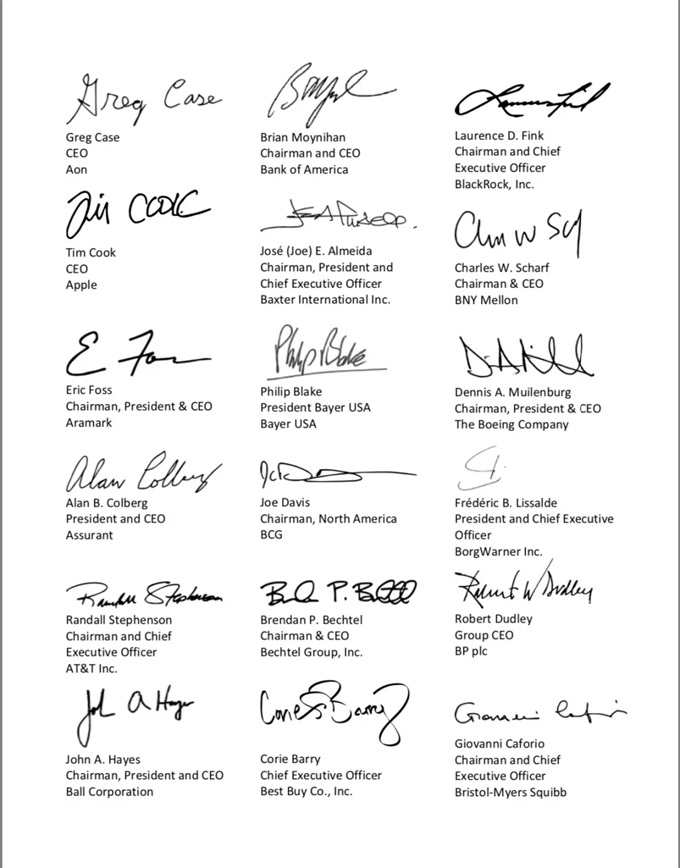 Greg Case
Greg Case
CEO
Aon
Brian Moynihan
Chairman and CEO
Bank of America
Laurence D. Fink
Chairman and Chief
Executive Officer
BlackRock, Inc.
Tim Cook
Tim Cook
CEO
Apple
José (Joe) E. Almeida
Chairman, President and
Chief Executive Officer
Baxter International Inc.
Charles W. Scharf
Chairman & CEO
BNY Mellon
Eric Foss
Chairman, President & CEO
Aramark
Philip Blake
Philip Blake
President Bayer USA
Bayer USA
Dennis A. Muilenburg
Chairman, President & CEO
The Boeing Company
Alan Colberg
Alan B. Colberg
President and CEO
Assurant
Joe Davis
Chairman, North America
BCG
Frédéric B. Lissalde
President and Chief Executive
Officer
BorgWarner Inc.
Randall Stephenson
Randall Stephenson
Chairman and Chief
Executive Officer
AT&T Inc.
Brendan P. Bechtel
Chairman & CEO
Bechtel Group, Inc.
Robert W Dudley
Robert Dudley
Group CEO
BP plc
John A Hayes
John A. Hayes
Chairman, President and CEO
Ball Corporation
Corie S Barry
Corie Barry
Chief Executive Officer
Best Buy Co., Inc.
Giovanni Caforio
Chairman and Chief
Executive Officer
Bristol-Myers Squibb